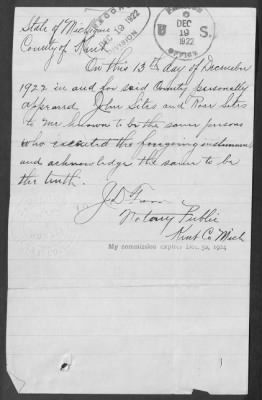 State of Michigan
County of Kent
On this 13th day of December
1922 in and for said County personally
appeared John Sites and Rose Sites
to me known to be the same persons
who executed the foregoing instrument
and acknowledge the same to be
the truth.
J D
Notary Public
Kent Co Mich
My commission expires Dec. 30, 1924
RECORD
DEC 19 1922
DIVISION
DEC
19
1922
U S
OFFICE